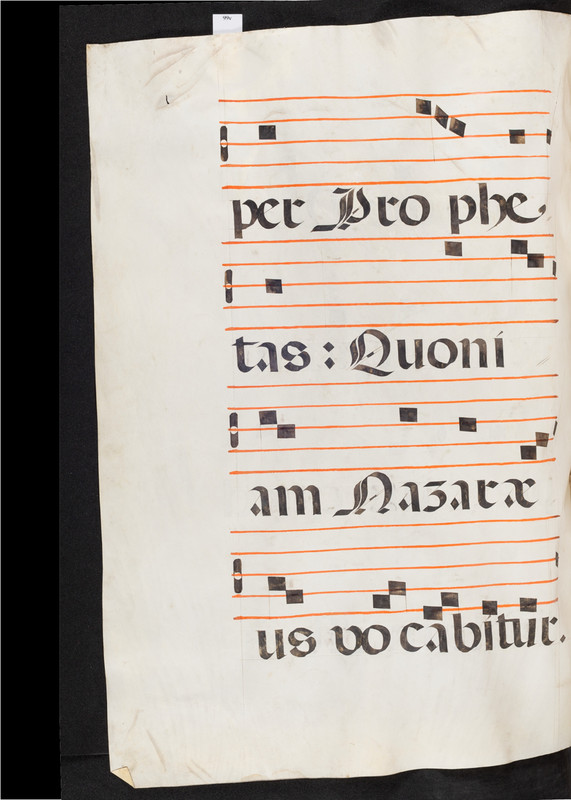 per Pro phe
tas : Quoni
am Nazaræ
us vo cabitur.